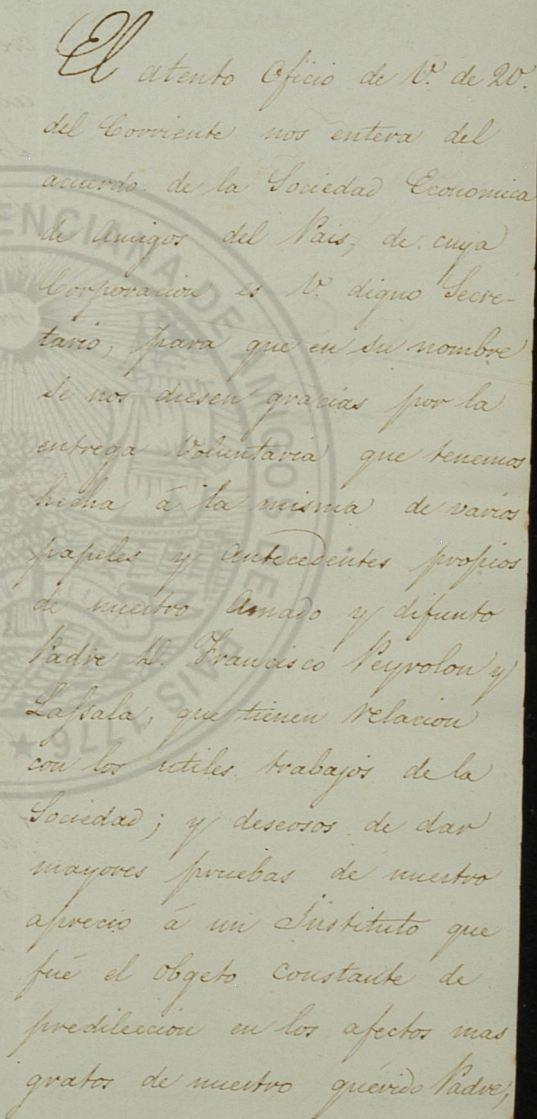 El atento oficio de V. de 20.
del Corriente nos entera del
acuerdo de la Sociedad Economica
de Amigos del Pais, de cuya
Corporacion es V. digno Secre-
tario, para que en su nombre
se nos diesen gracias por la
entrega Voluntaria que tenemos
hecha á la misma de varios
papeles y antecedentes propios
de nuestro Amado y difunto
Padre D. Francisco Peyrolon y
Lassala, que tienen relacion
con los utiles trabajos de la
Sociedad; y deseosos de dar
mayores pruebas de nuestro
aprecio á un Instituto que
fué el obgeto constante de
predileccion en los afectos mas
gratos de nuestro querido Padre,
ENCIANA DE AMIGOS DE
PAIS 1776 ★